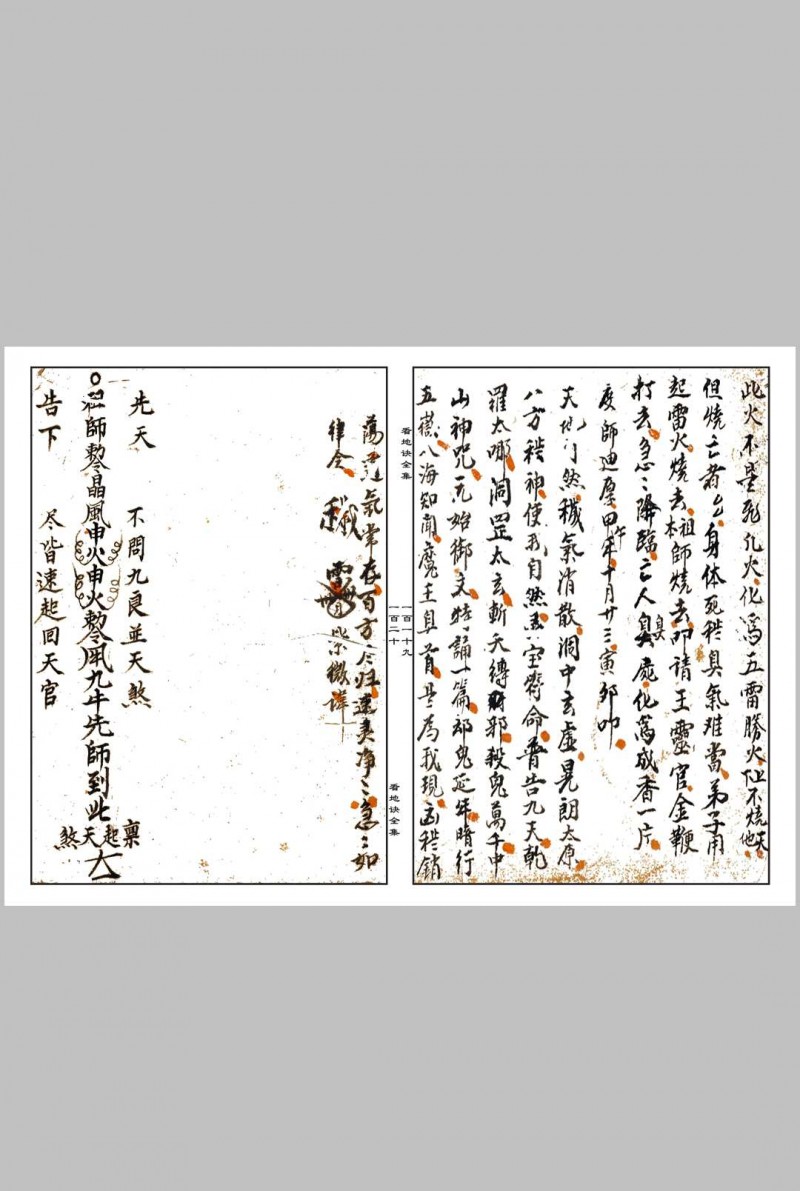 此火不是死凡火化為五雷勝火阻不燒天地
但燒亡者身体死秽臭氣难當弟子用
起雷火燒去祖本師燒去叩請王靈官金鞭
打去急〻降臨亡人臭臭屍化為成香一片
度師迪厚四年午十月廿三寅卯叩
天地自然穢氣消散洞中玄虛晃朗太原
八方秽神使我自然宝符命普告九天乾
羅太哪洞罡太玄斬夭縛邪殺鬼萬千中
山神咒元始御文持誦一篇却鬼延年暗行
五嶽八海知聞魔王自首是為我現凶秽銷
看地诀全集
一百一十九
一百二十
看地诀全集
蕩氣常存百方歸速美净〻急〻如
律令
穢
紫微諱
先天 不問九良並天煞
祖師敕晶風申火申火敕風九牛先師到此
稟起天煞
告下 尽皆速起回天官